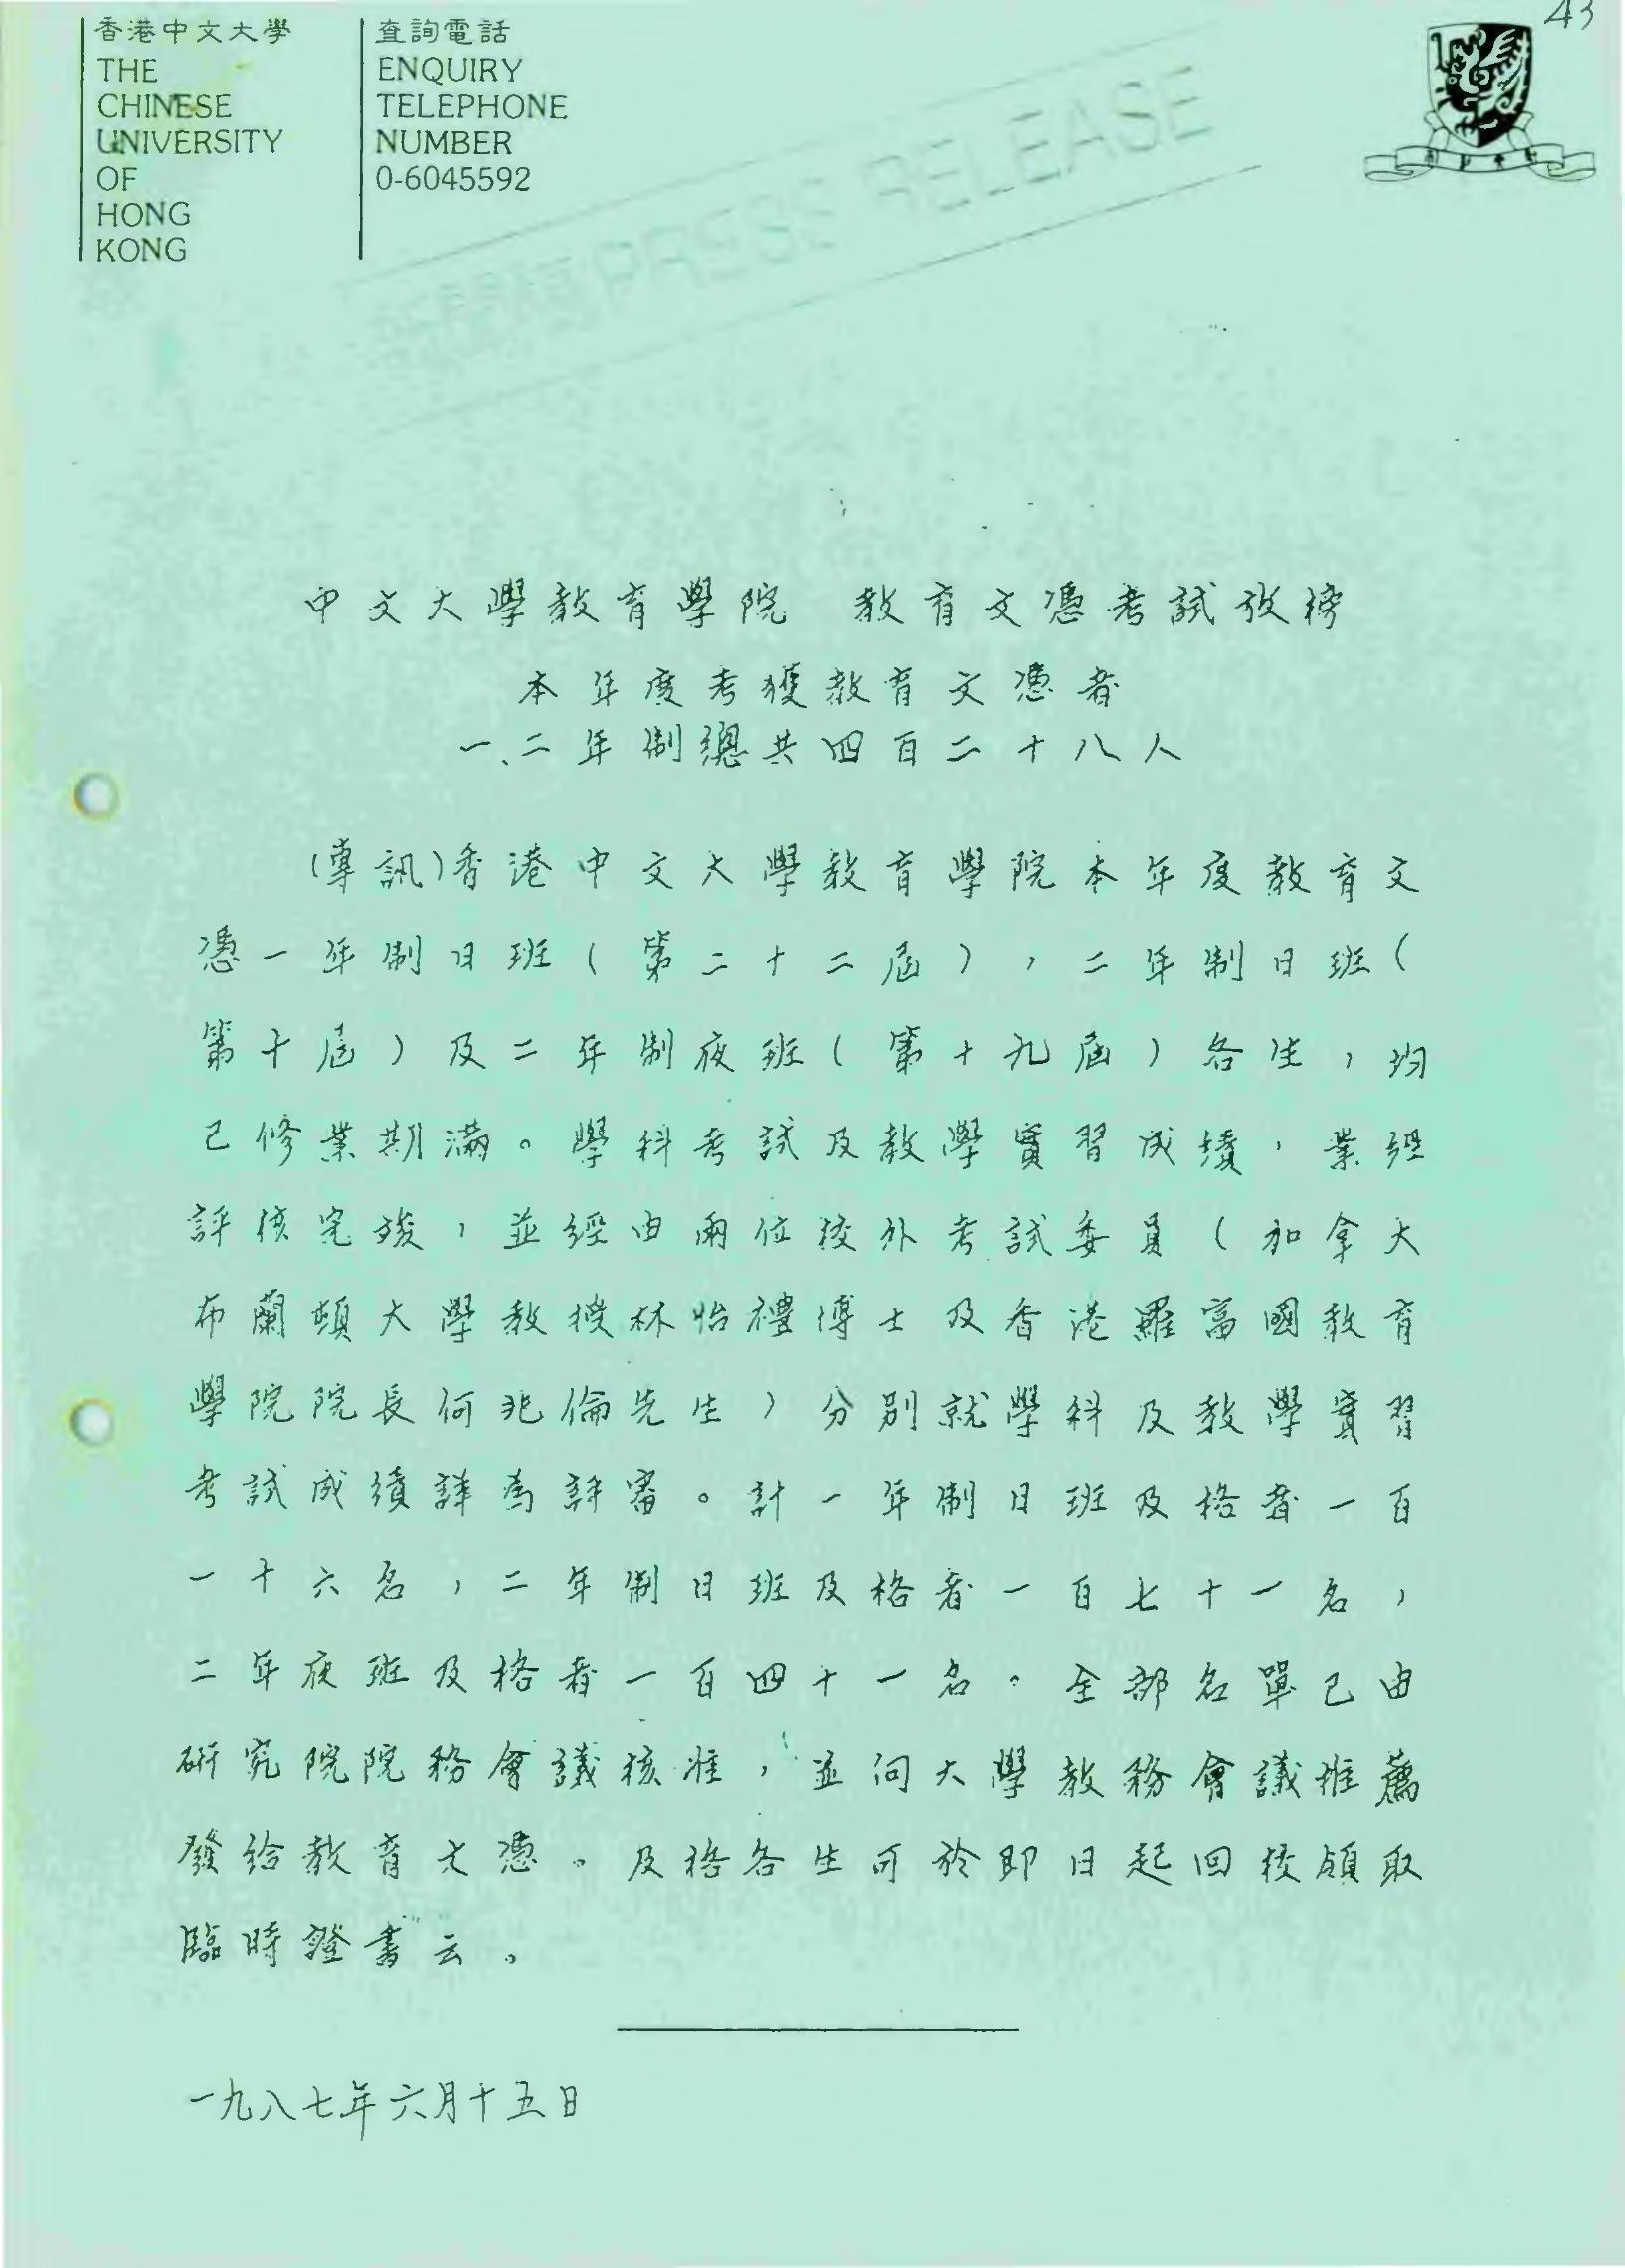 43
香港中文大學
THE
CHINESE
UNIVERSITY
OF
HONG
KONG
查詢電話
ENQUIRY
TELEPHONE
NUMBER
0-6045592
新聞稿 PRESS RELEASE
中文大學教育學院 教育文憑考試放榜
本年度考獲教育文憑者
一、二年制總共四百二十八人
(專訊)香港中文大學教育學院本年度教育文
憑一年制日班(第二十二屆),二年制日班(
第十屆)及二年制夜班(第十九屆)各生,均
已修業期滿。學科考試及教學實習成績,業經
評核完竣,並經由兩位校外考試委員(加拿大
布蘭頓大學教授林怡禮博士及香港羅富國教育
學院院長何兆倫先生)分別就學科及教學實習
考試成績詳為評審。計一年制日班及格者一百
一十六名,二年制日班及格者一百七十一名,
二年夜班及格者一百四十一名。全部名單已由
研究院院務會議核准,並向大學教務會議推薦
發給教育文憑。及格各生可於即日起回校領取
臨時證書云。
一九八七年六月十五日